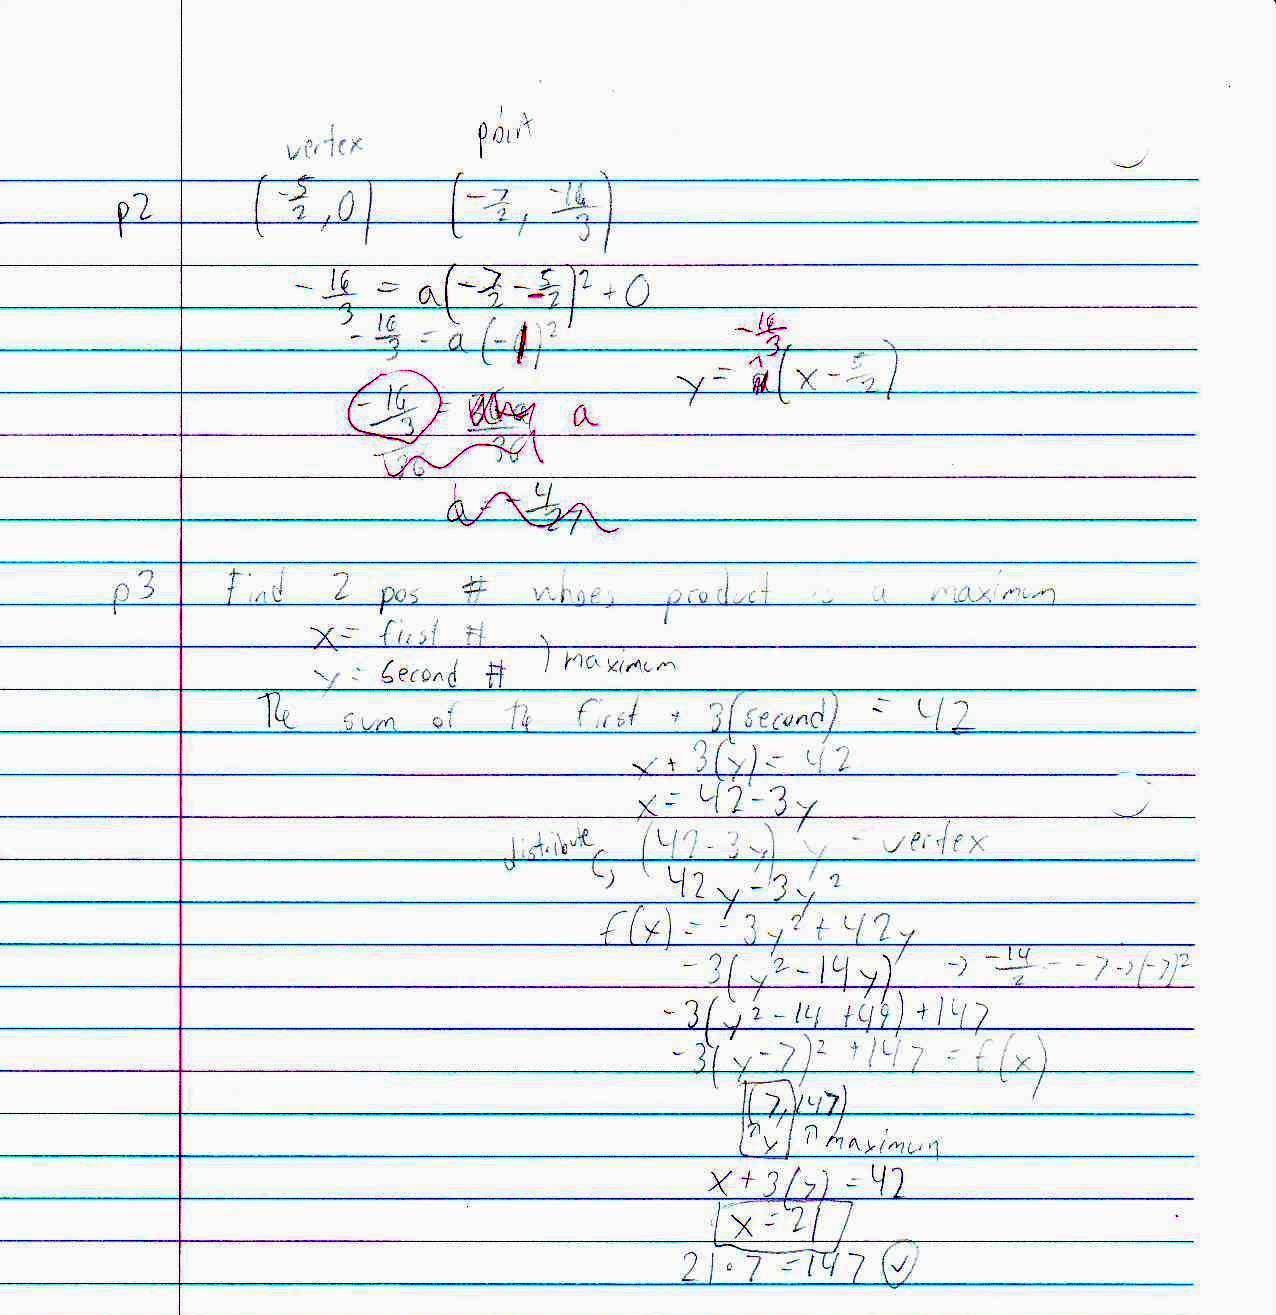 vertex point
p2 (-5/2, 0) (-7/2, -16/3)
-16/3 = a(-7/2 - -5/2)² + 0
-16/3 = a(-1)²
-16/3
y = a(x - 5/2)
-16/3 = a
36 36
a = -4/27
p3 Find 2 pos # whoes product is a maximum
x = first #
y = second # ) maximum
The sum of the first + 3(second) = 42
x + 3(y) = 42
x = 42 - 3y
distribute (42 - 3y) y = vertex
42y - 3y²
f(x) = -3y² + 42y
-3(y² - 14y) → -14/2 = -7 → (-7)²
-3(y² - 14 + 49) + 147
-3(y - 7)² + 147 = f(x)
(7, 147)
↑ y ↑ maximum
x + 3(7) = 42
x = 21
21 · 7 = 147 ✓